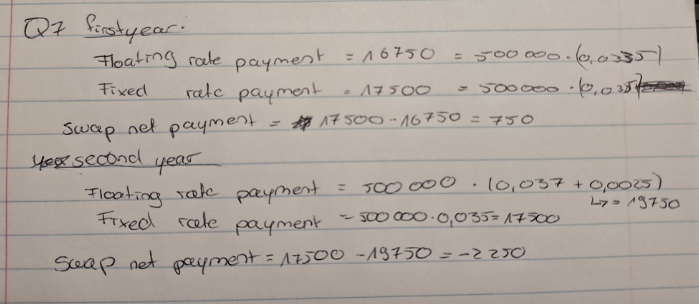 Q7 firstyear.
Floating rate payment = 16750 = 500000 · (0,0335)
Fixed rate payment = 17500 = 500000 · (0,035)
Swap net payment = 17500 - 16750 = 750
second year
Floating rate payment = 500000 · (0,037 + 0,0025)
↳ = 19750
Fixed rate payment = 500000 · 0,035 = 17500
Swap net payment = 17500 - 19750 = -2250